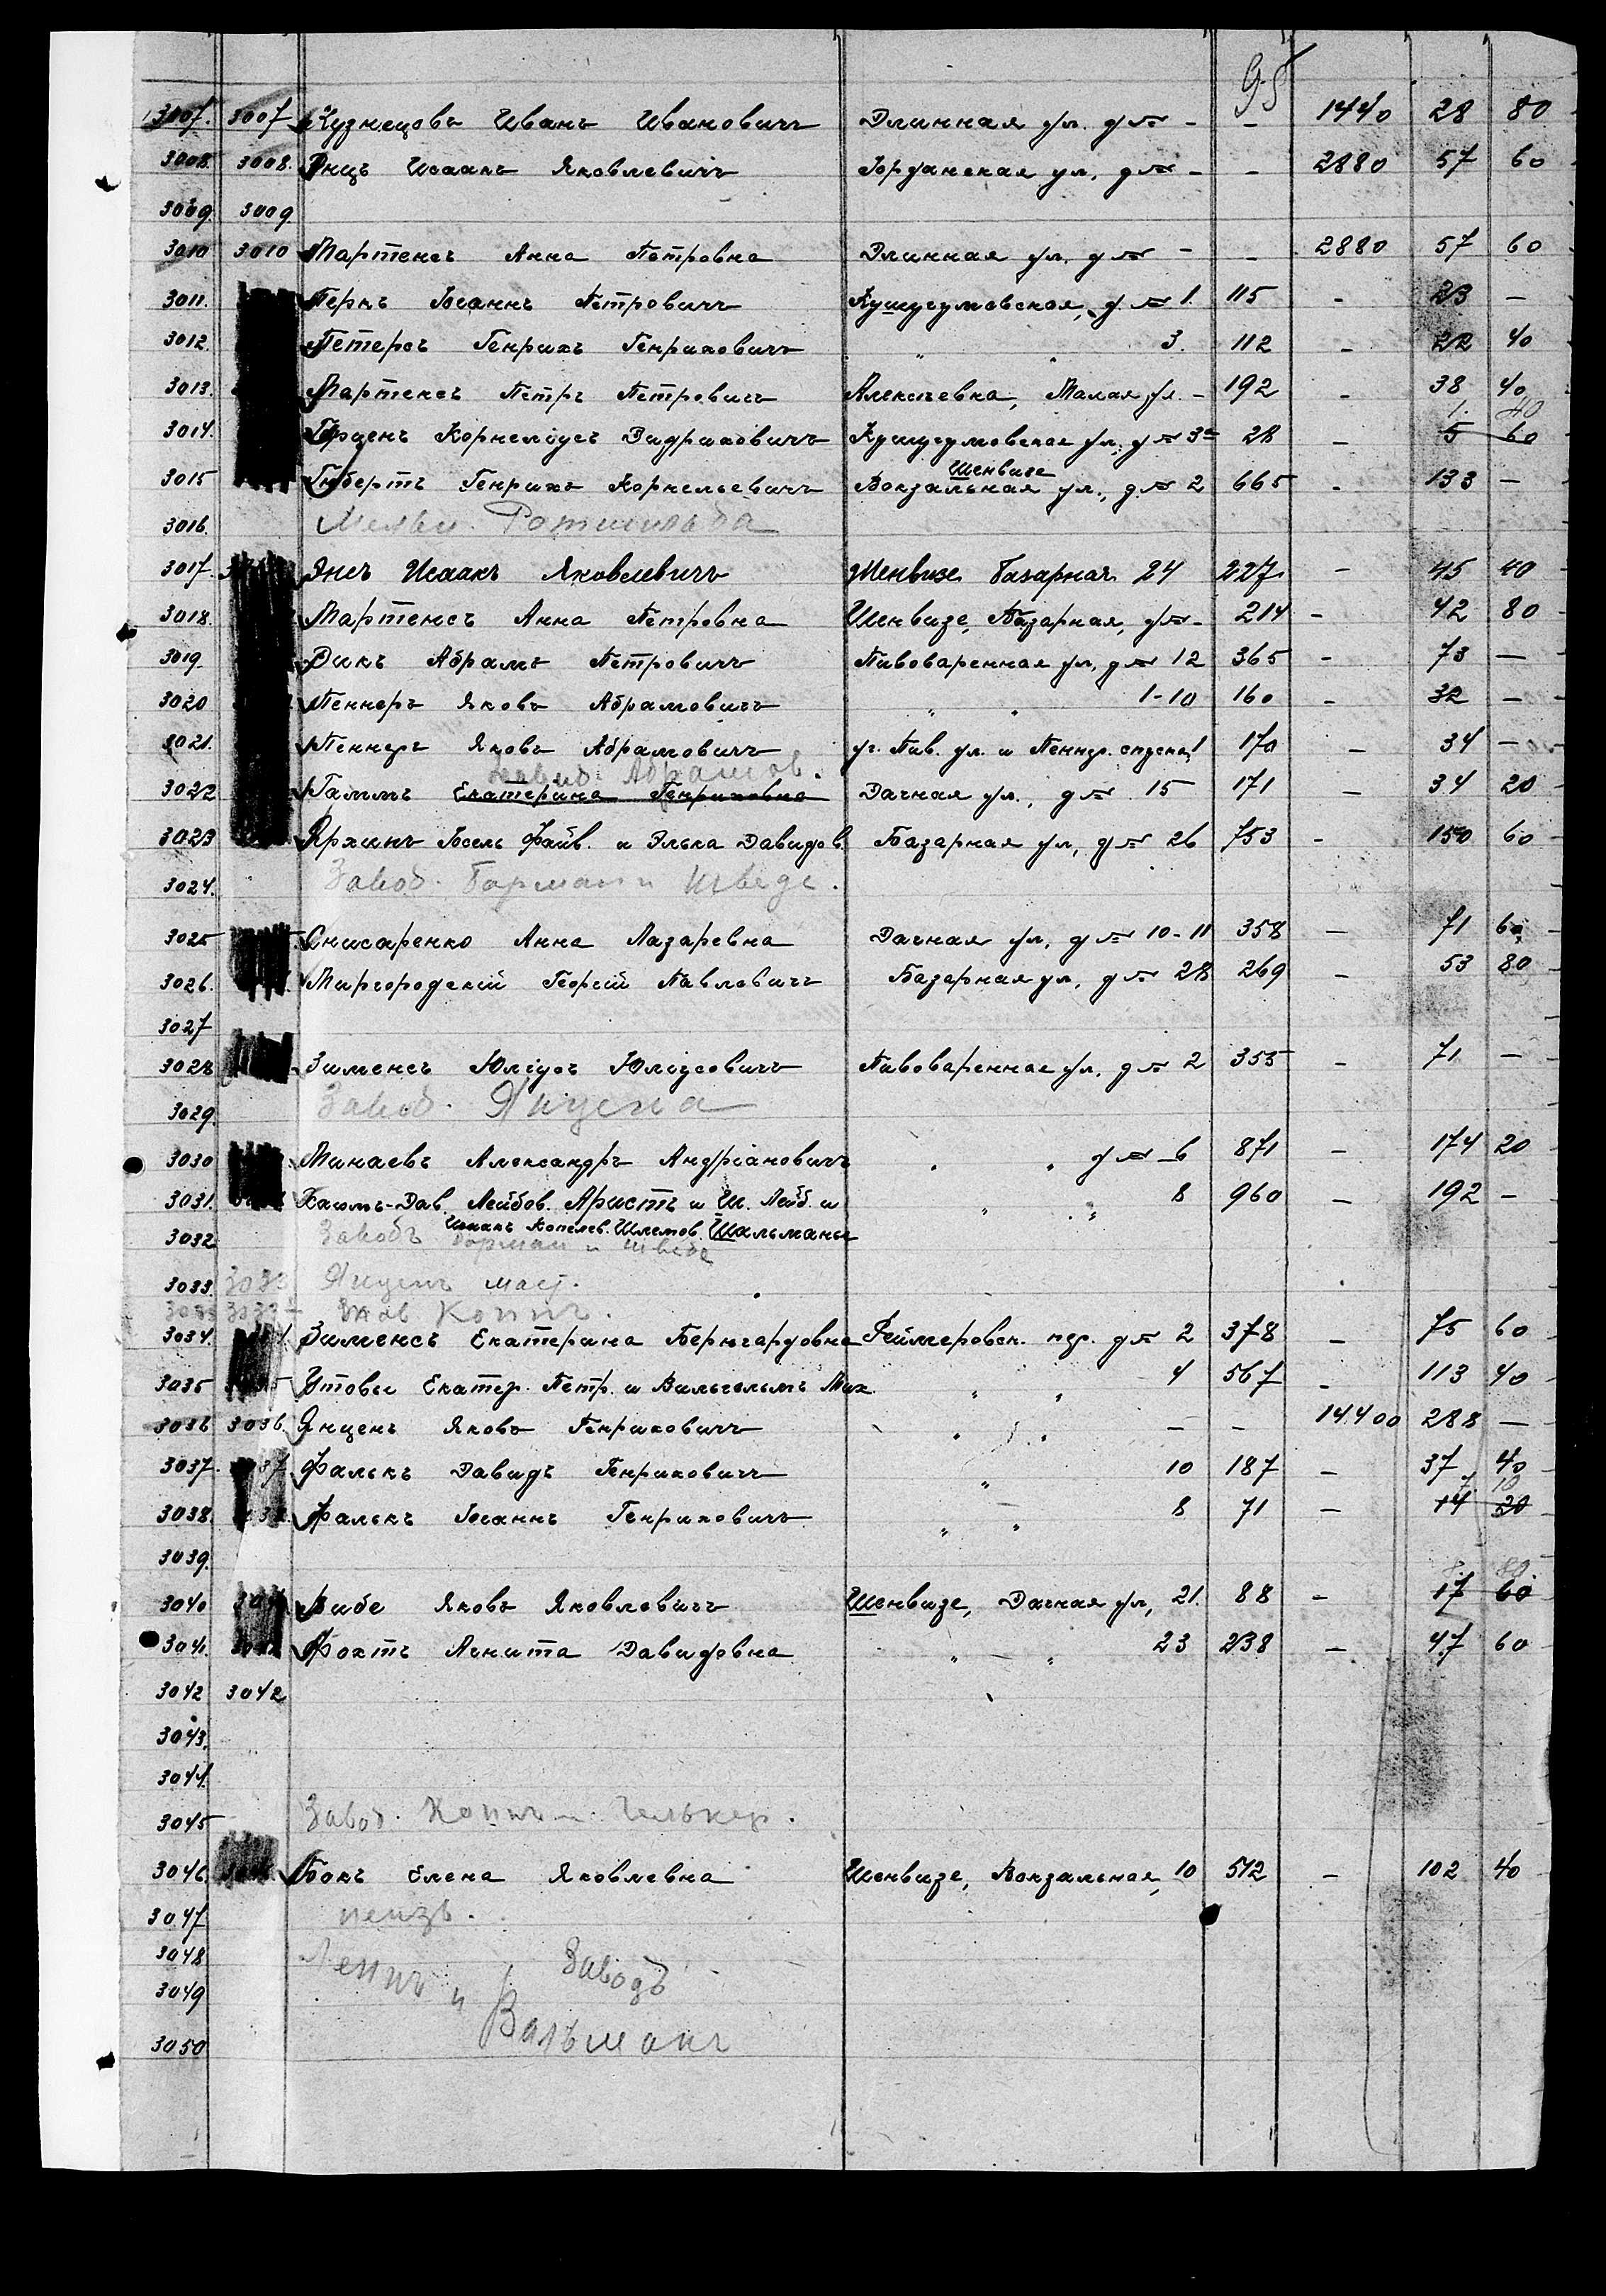 95
3007. 3007 Кузнецовъ Иванъ Ивановичъ Длинная ул. д № - - 1440 28 80
3008. 3008. Янцъ Исаакъ Яковлевичъ Іорданская ул. д № - - 2880 57 60
3009. 3009.
3010 3010 Мартенсъ Анна Петровна Длинная ул. д № - - 2880 57 60
3011. Перкъ Іоганнъ Петровичъ Кушугумовская, д. № 1. 115 - 23 —
3012. Петерсъ Генрихъ Генриховичъ " " 3. 112 - 22 40
3013. Мартенсъ Петръ Петровичъ Алексѣевка, Малая ул. - 192 - 38 40
1. 40
3014. Герценъ Корнеліусъ Дидриховичъ Кушугумовская ул. д № 3а 28 - 5 60
Шенвизе
3015 Гибертъ Генрихъ Корнельевичъ Вокзальная ул., д № 2 665 - 133 —
3016.
3017. Янсъ Исаакъ Яковлевичъ Шенвизе Базарная 24 227 - 45 40
3018. Мартенсъ Анна Петровна Шенвизе, Базарная, д № - 214 - 42 80
3019. Дикъ Абрамъ Петровичъ Пивоваренная ул, д № 12 365 - 73 —
3020 Пеннеръ Яковъ Абрамовичъ " " 1-10 160 - 32 —
3021. Пеннеръ Яковъ Абрамовичъ уг. Пив. ул. и Пеннер. спуска 1 170 - 34 —
Давид. Абрамов.
3022 Гаммъ Екатерина Генриховна Дачная ул., д № 15 171 - 34 20
3023 Ярхинъ Іосель Файв. и Элька Давидов. Базарная ул, д № 26 753 - 150 60
3024. Завод. Борман и Шведе.
3025 Снисаренко Анна Лазаревна Дачная ул, д № 10-11 358 - 71 60
3026. Миргородскій Георгій Павловичъ Базарная ул, д № 28 269 - 53 80
3027
3028 Зименсъ Юліусъ Юліусовичъ Пивоваренная ул. д № 2 355 - 71 —
3029. Завод. Янцена
3030 Минаевъ Александръ Андріановичъ " " д № 6 871 - 174 20
3031. Хаимъ-Дав. Лейбов. Аристъ и Ш. Лейб. и " " 8 960 - 192 —
Исаакъ Копелев. Шлемов. Шальманы
3032 Заводъ Борман и Шведе
3033 3033 Янценъ маст.
3033 3033 Яков Коппъ.
3034. Зименсъ Екатерина Бернгардовна Реймеровск. пер. д № 2 378 - 75 60
3035 Утовы Екатер. Петр. и Вильгельмъ Мих. " " 4 567 - 113 40
3036 3036. Янценъ Яковъ Генриховичъ " " - - 14400 288 —
3037. Фалькъ Давидъ Генриховичъ " 10 187 - 37 40
7. 10
3038. Фалькъ Іоганнъ Генриховичъ " " 8 71 - 14 20
3039.
8. 80
3040 Рибе Яковъ Яковлевичъ Шенвизе, Дачная ул, 21. 88 - 17 60
3041. Фохтъ Аганита Давидовна " " 23 238 - 47 60
3042 3042
3043.
3044.
3045 Завод. Коппъ и Гелькер.
3046. Бокъ Елена Яковлевна Шенвизе, Вокзальная, 10 512 - 102 40
3047 неизв.
3048
Леппъ и Заводъ
3049
Вальманъ
3050